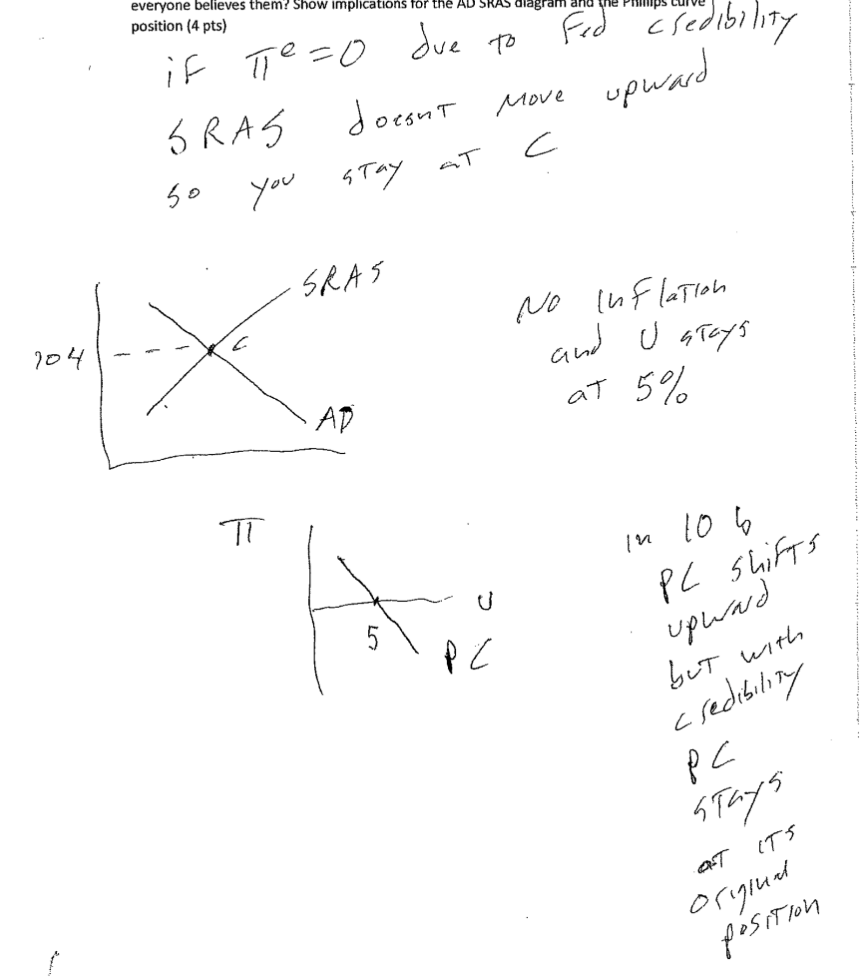 everyone believes them? Show implications for the AD SRAS diagram and the Phillips curve
position (4 pts)
if πᵉ=0 due to Fed credibility
SRAS doesnt move upward
so you stay at C
SRAS
104
C
AD
No Inflation
and U stays
at 5%
π
U
5
PC
in 10 b
PC shifts
upward
but with
credibility
PC
stays
at its
original
position